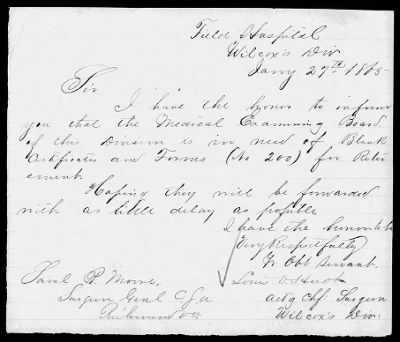 Field Hospital
Wilcox's Div
Jany 27th 1865
Sir
I have the honor to inform
you that the Medical Examining Board
of this Division is in need of Blank
Certificates and Forms (No 200) for Retir
ement.
Hoping they will be forwarded
with as little delay as possible
I have the honor to be
Very Respectfully
Yr Obt Servant
Saml P. Moore,
Surgeon Genl C.S.A
Richmond Va
Actg Chf. Surgeon
Wilcox's Div.